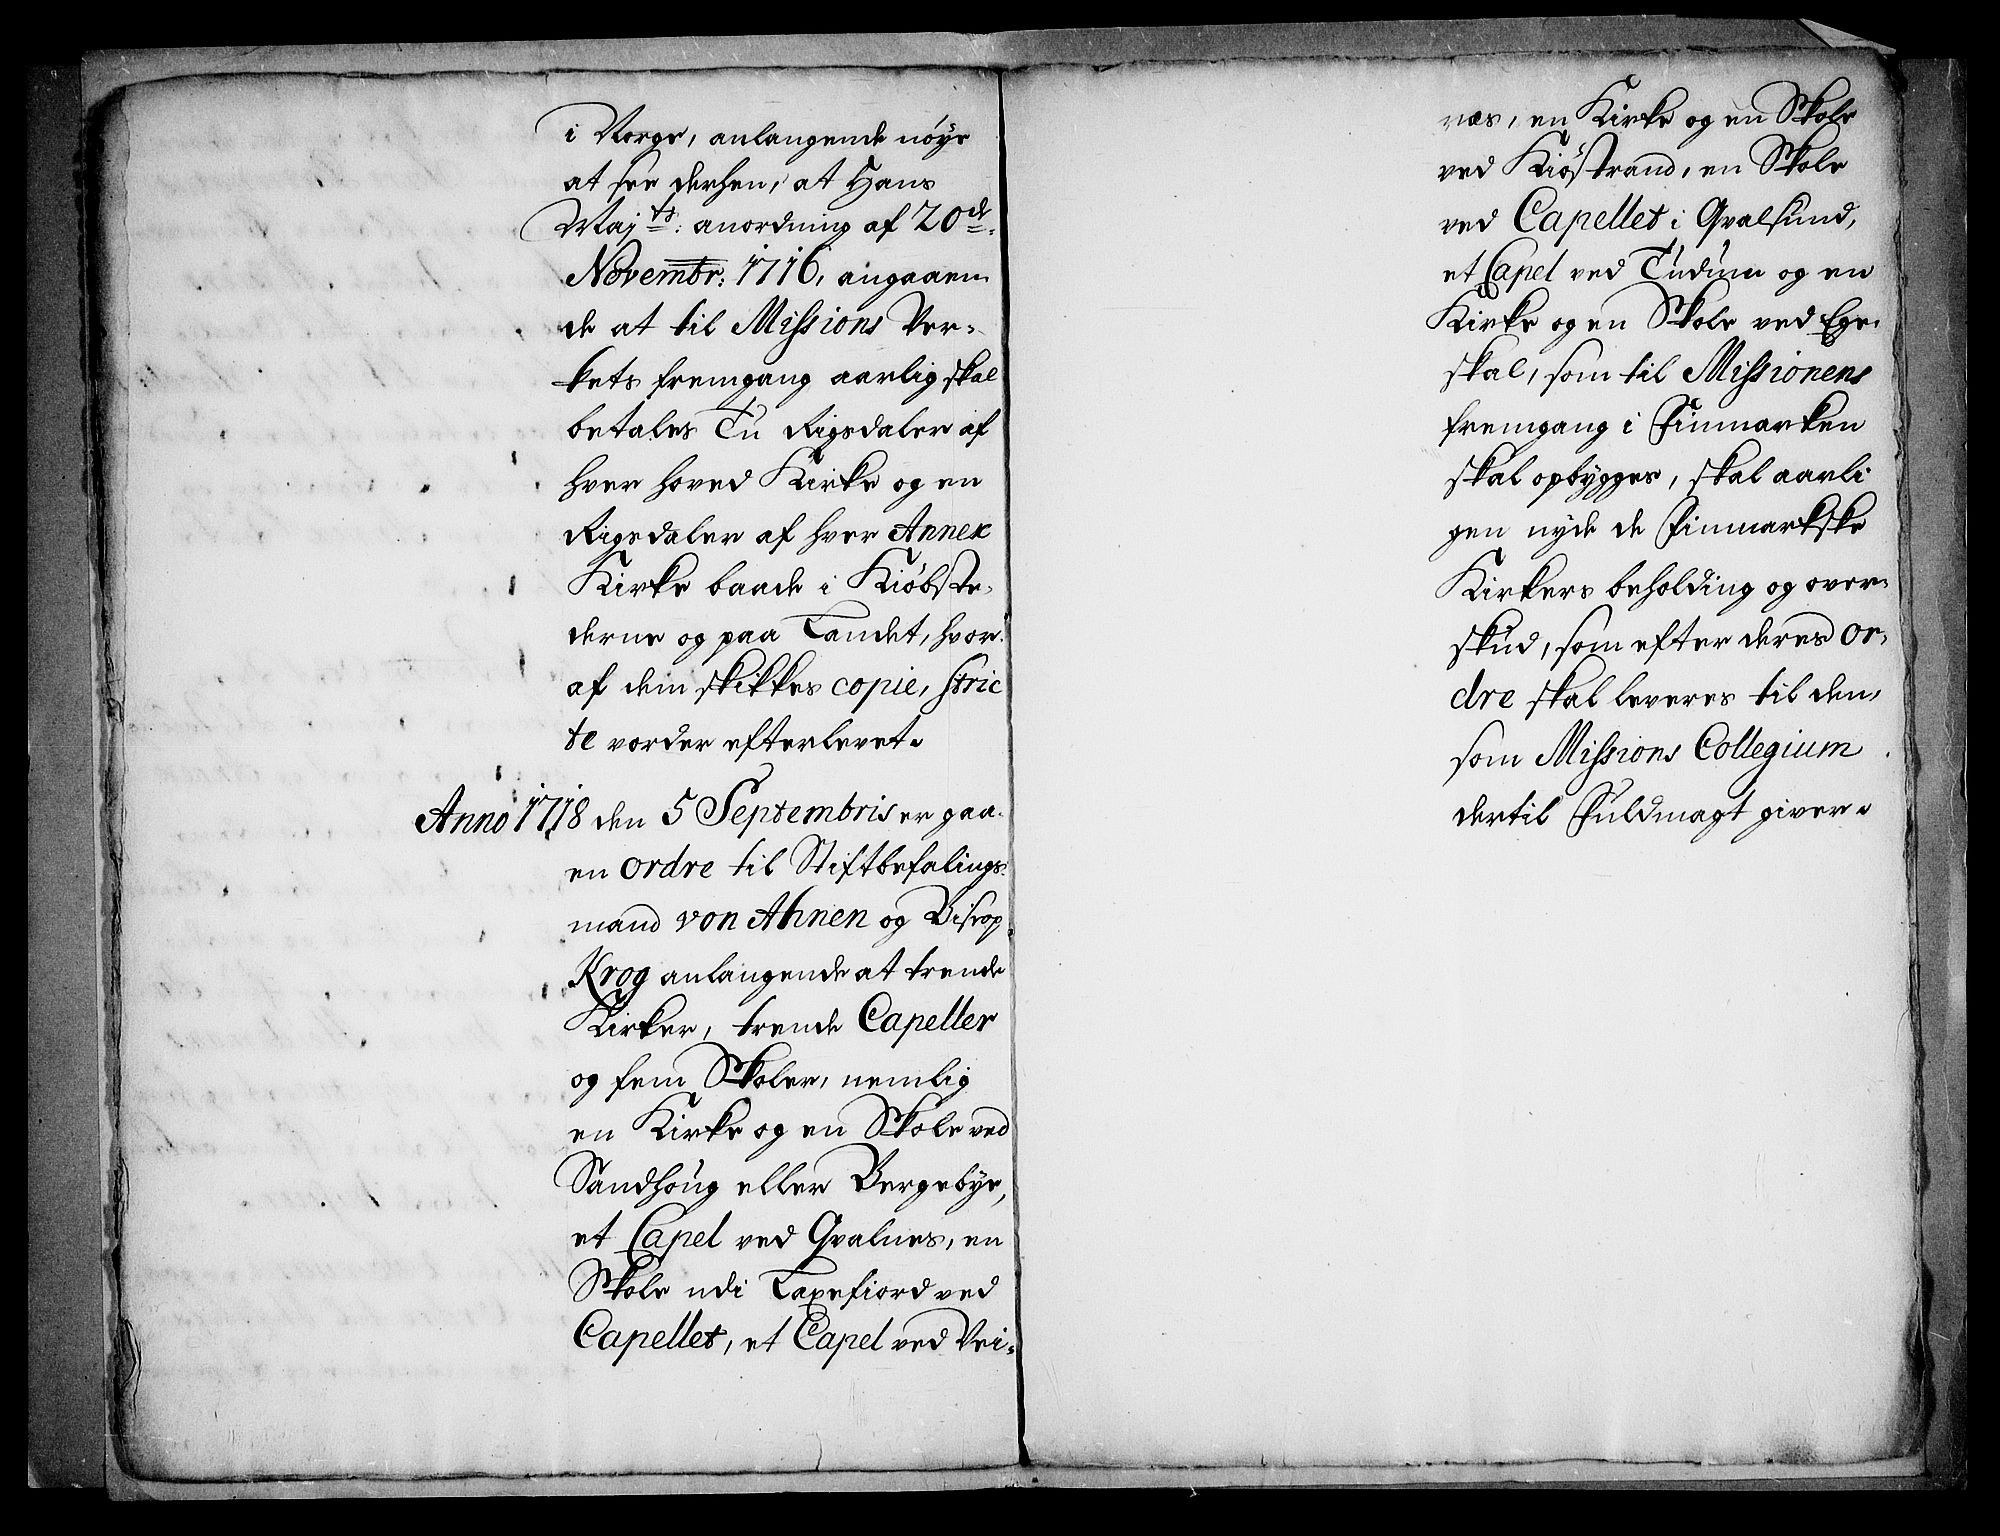 i Norge, anlangende nöye
at see derhen, at Hans
Maj<sup>ts</sup>: anordning af 20<sup>de</sup>
Novembr: 1716, angaaen
de at til Missions Ver-
kets fremgang aarlig skal
betales Tu Rigsdaler af
hver hoved Kirke og en
Rigsdaler af hver Annex
Kirke baade i Kiöbste-
derne og paa Landet, hvor-
af dem skikkes copie, stric
te vorder efterlevet.
Anno 1718 den 5 Septembris er gaa-
en ordre til Stiftbefalings-
mand von Ahnen og Biscop
Krog anlangende at trende
Kirker, trende Capeller
og fem Skoler, nemlig
en Kirke og en Skole ved
Sandhoug eller Bergebye,
et Capel ved Qvalnes, en
Skole udi Laxefiord ved
Capellet, et Capel ved Vei-
næs, en Kirke og en Skole
ved Kiöstrand, en Skole
ved Capellet i Qvalsund,
et Capel ved og en
Kirke og en Skole ved Ege-
skal, som til Missionens
fremgang i Finmarken
skal opbygges, skal aarli
gen nyde de Finmarkske
Kirkers beholding og over-
skud, som efter deres or-
dre skal leveres til den,
som Missions Collegium
dertil Fuldmagt giver.